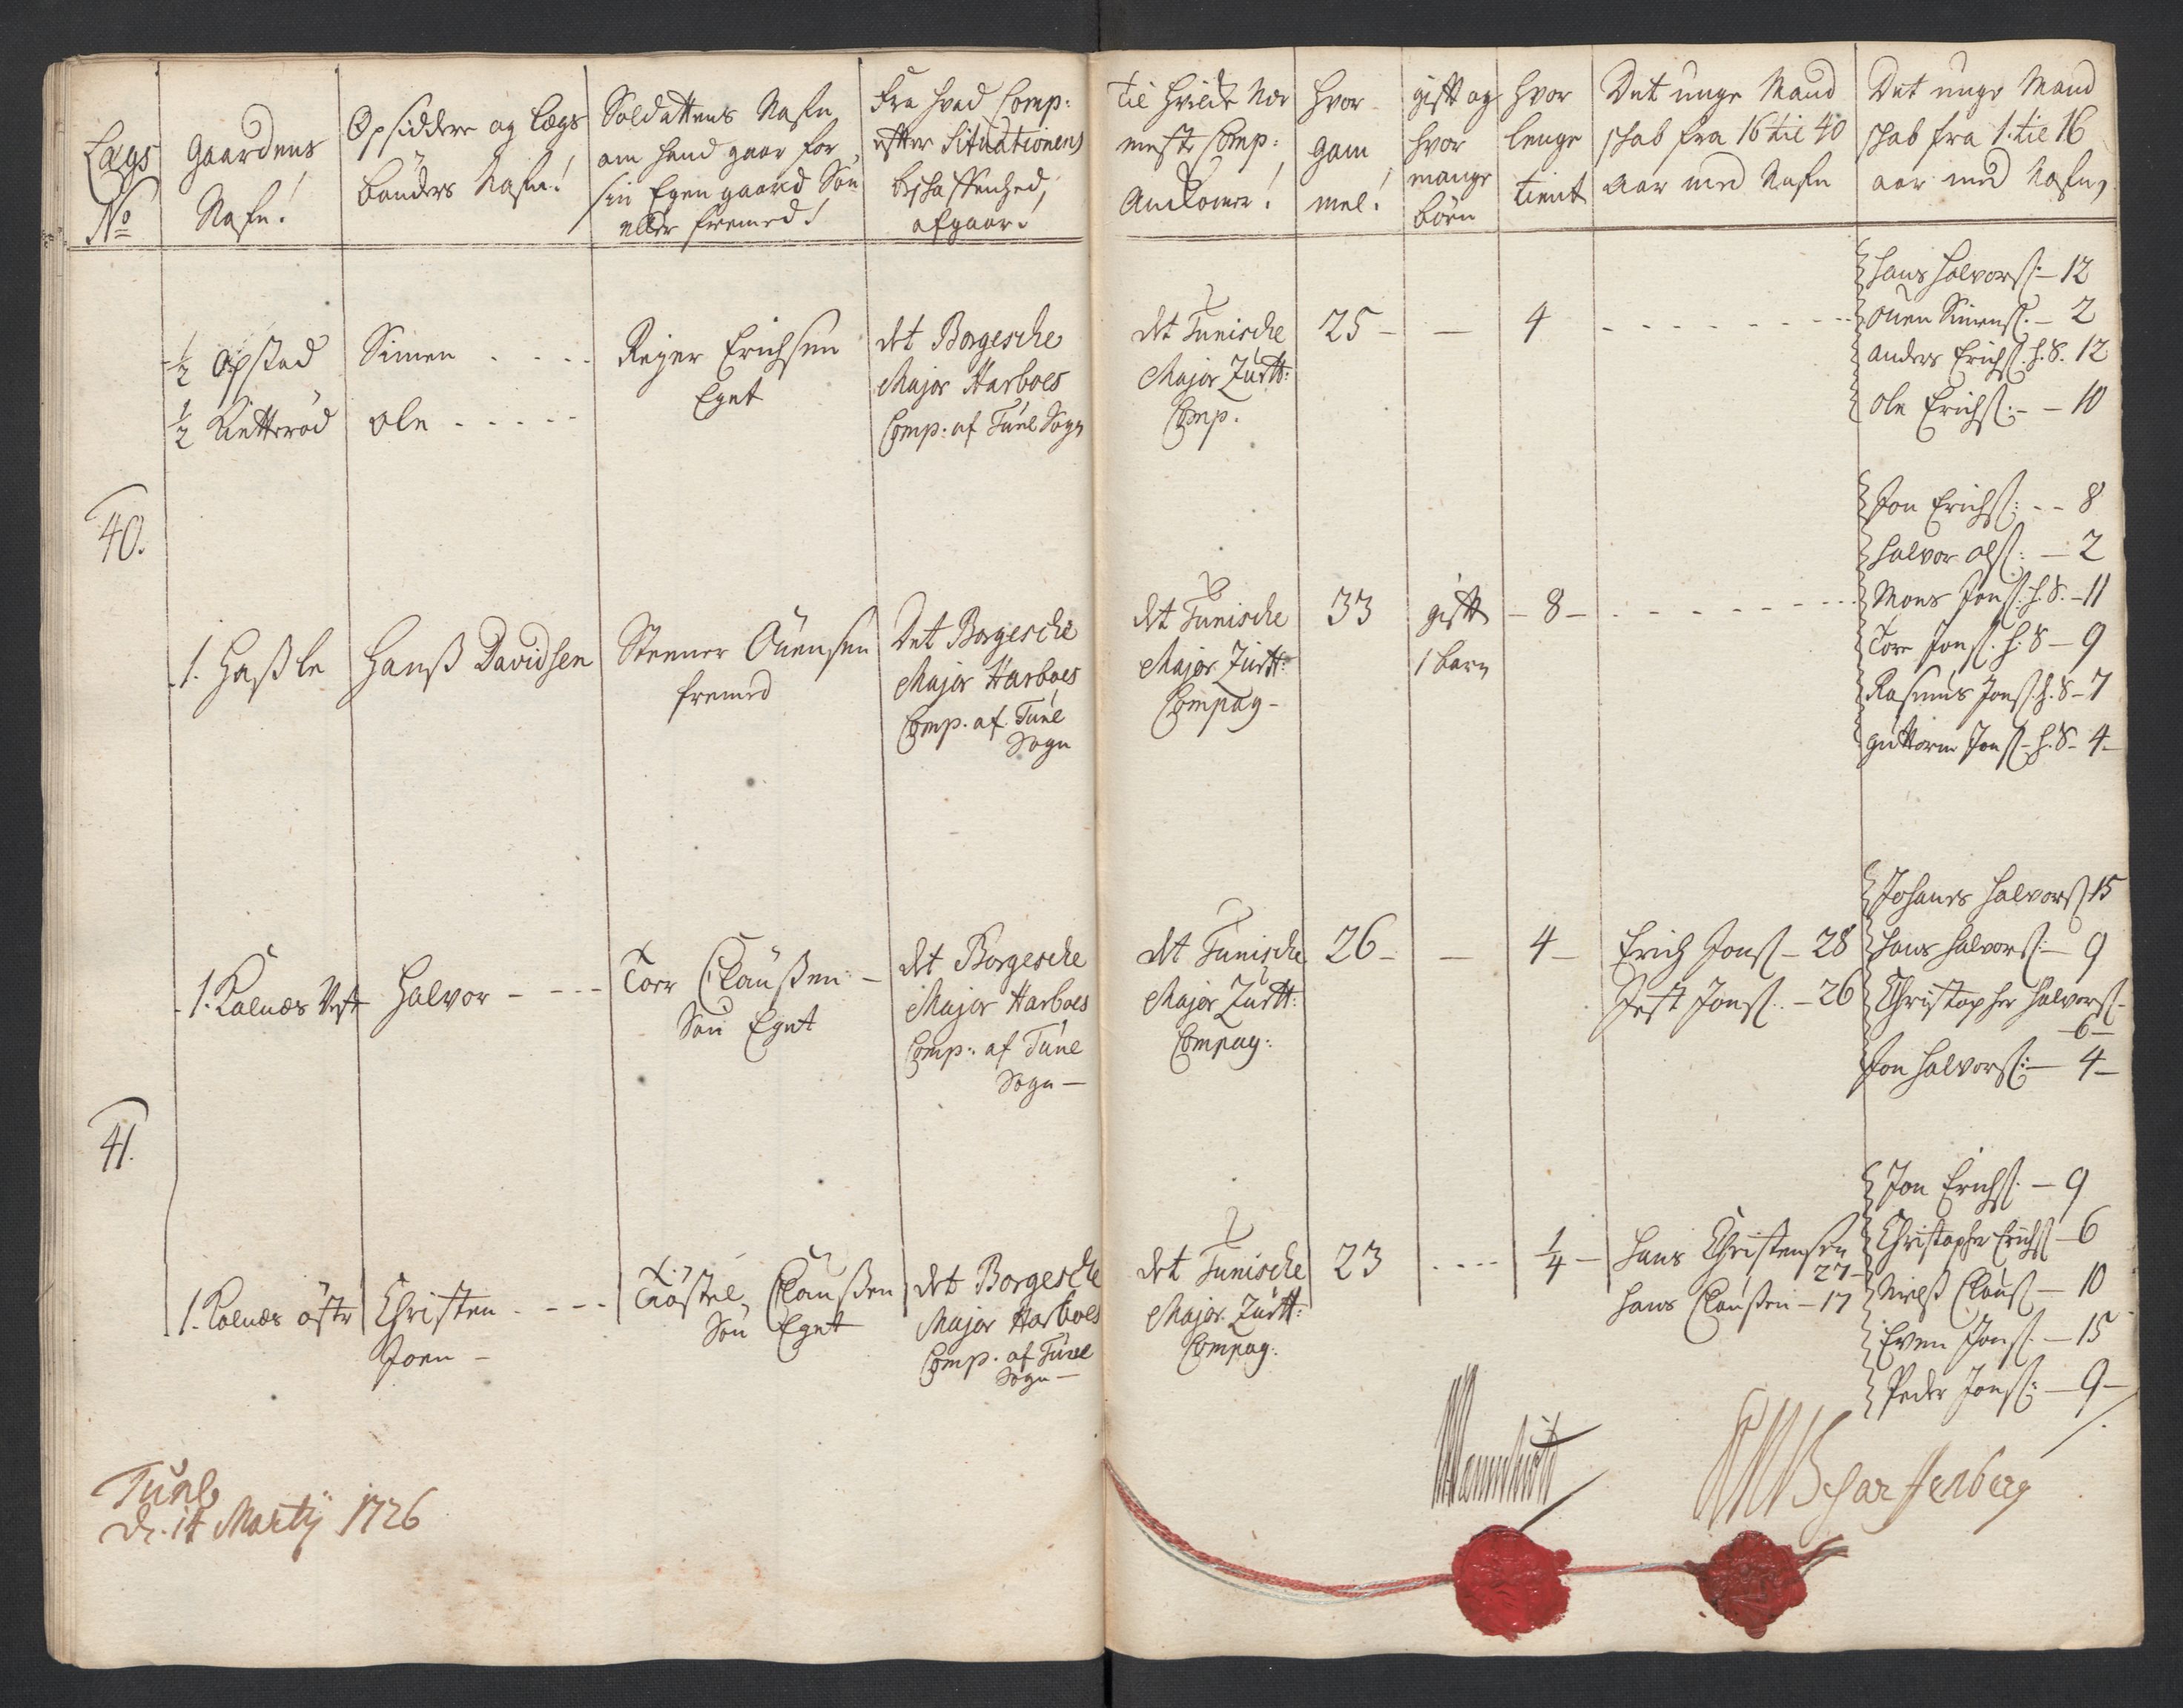 Lægs
No
Gaardens
Nafn!
Opsiddere og Lægs
bönders Nafn!
Soldattens Nafn
om hand gaar for
sin Egen gaard Søn
eller fremed!
Fra hvad Comp:
efter Situationens
beschaffenhed,
afgaar!
Til hvilde Nær
meste Comp:
Ankomer!
Hvor
gam
mel!
gift og
hvor
mange
börn
Hvor
lenge
tient
Det unge Mand
schab fra 16 til 40
Aar med Nafn
Det unge Mand
schab fra 1 til 16
aar med Nafn,
1/2 Opstad
Simen
Rejer Erichsen
Egnt
det Borgesche
Major Harboes
Comp: af Tune Sogn
1/2 Kietterød
Ole
det Tunische
Major Zürtt:
Comp.
25 - — 4
Hans Halvorss: — 12
Ouen Simenss: — 2
Anders Erichss. h. S. 12
Ole Erichss: — 10
40.
1. Haßle
Hanß Davidsen
Steener Ouensen
fremed
Det Borgesche
Major Harboes
Comp. af Tune
Sogn
det Tunische
Major Zürtt:
Compag -
33
gift
1 barn
- 8 -
Jon Erichss: - - 8
Halvor Olss: — 2
Mons Jonss: h. S. - 11
Tore Jonss. h. S - 9
Rasmus Jonss. h. S - 7
Guttorm Jonss - h. S - 4 -
1. Kalnæs Vest
Halvor
Torr Claußen
Søn Egnt
det Borgesche
Major Harboes
Comp: af Tune
Sogn —
det Tunische
Major Zürtt:
Compag:
26 - — 4 -
Erich Jonss - 28
Jest Jonss. - 26
Johanes Halvorss 15
Hans Halvorss: — 9
Christopher Halvorss -
- 6 -
Jon Halvorss: — 4 -
41.
1. Kalnæs öste
Christen
Joen -
Tröstel Claußen
Søn Egnt
det Borgesche
Major Harboes
Comp. af Tune
Sogn —
det Tunische
Major Zürtt:
Compag:
23
1/4 -
Hans Christensen
27 -
Hans Claußen - 17
Jon Erichss. — 9
Christopher Erichss - 6
Nielß Clauss — 10
Even Jonss. — 15
Peder Jonss: — 9 —
Tune
d. 14 Martij 1726
Scharffenberg